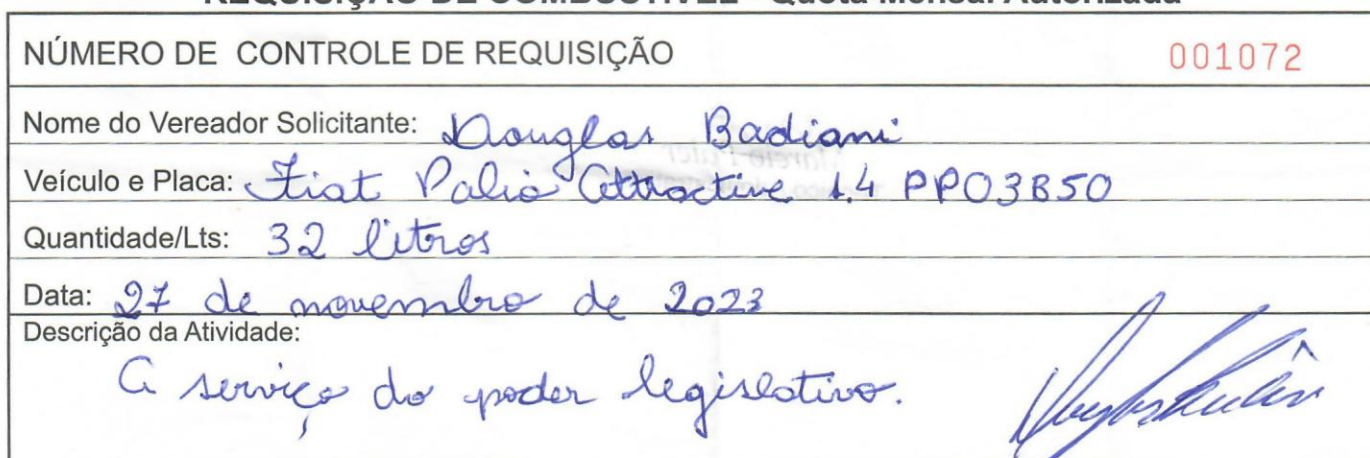 REQUISIÇÃO DE COMBUSTÍVEL - Quota Mensal Autorizada
NÚMERO DE CONTROLE DE REQUISIÇÃO 001072
Nome do Vereador Solicitante: Douglas Badiani
Veículo e Placa: Fiat Palio Attractive 1.4 PPO3B50
Quantidade/Lts: 32 litros
Data: 27 de novembro de 2023
Descrição da Atividade:
A serviço do poder legislativo.